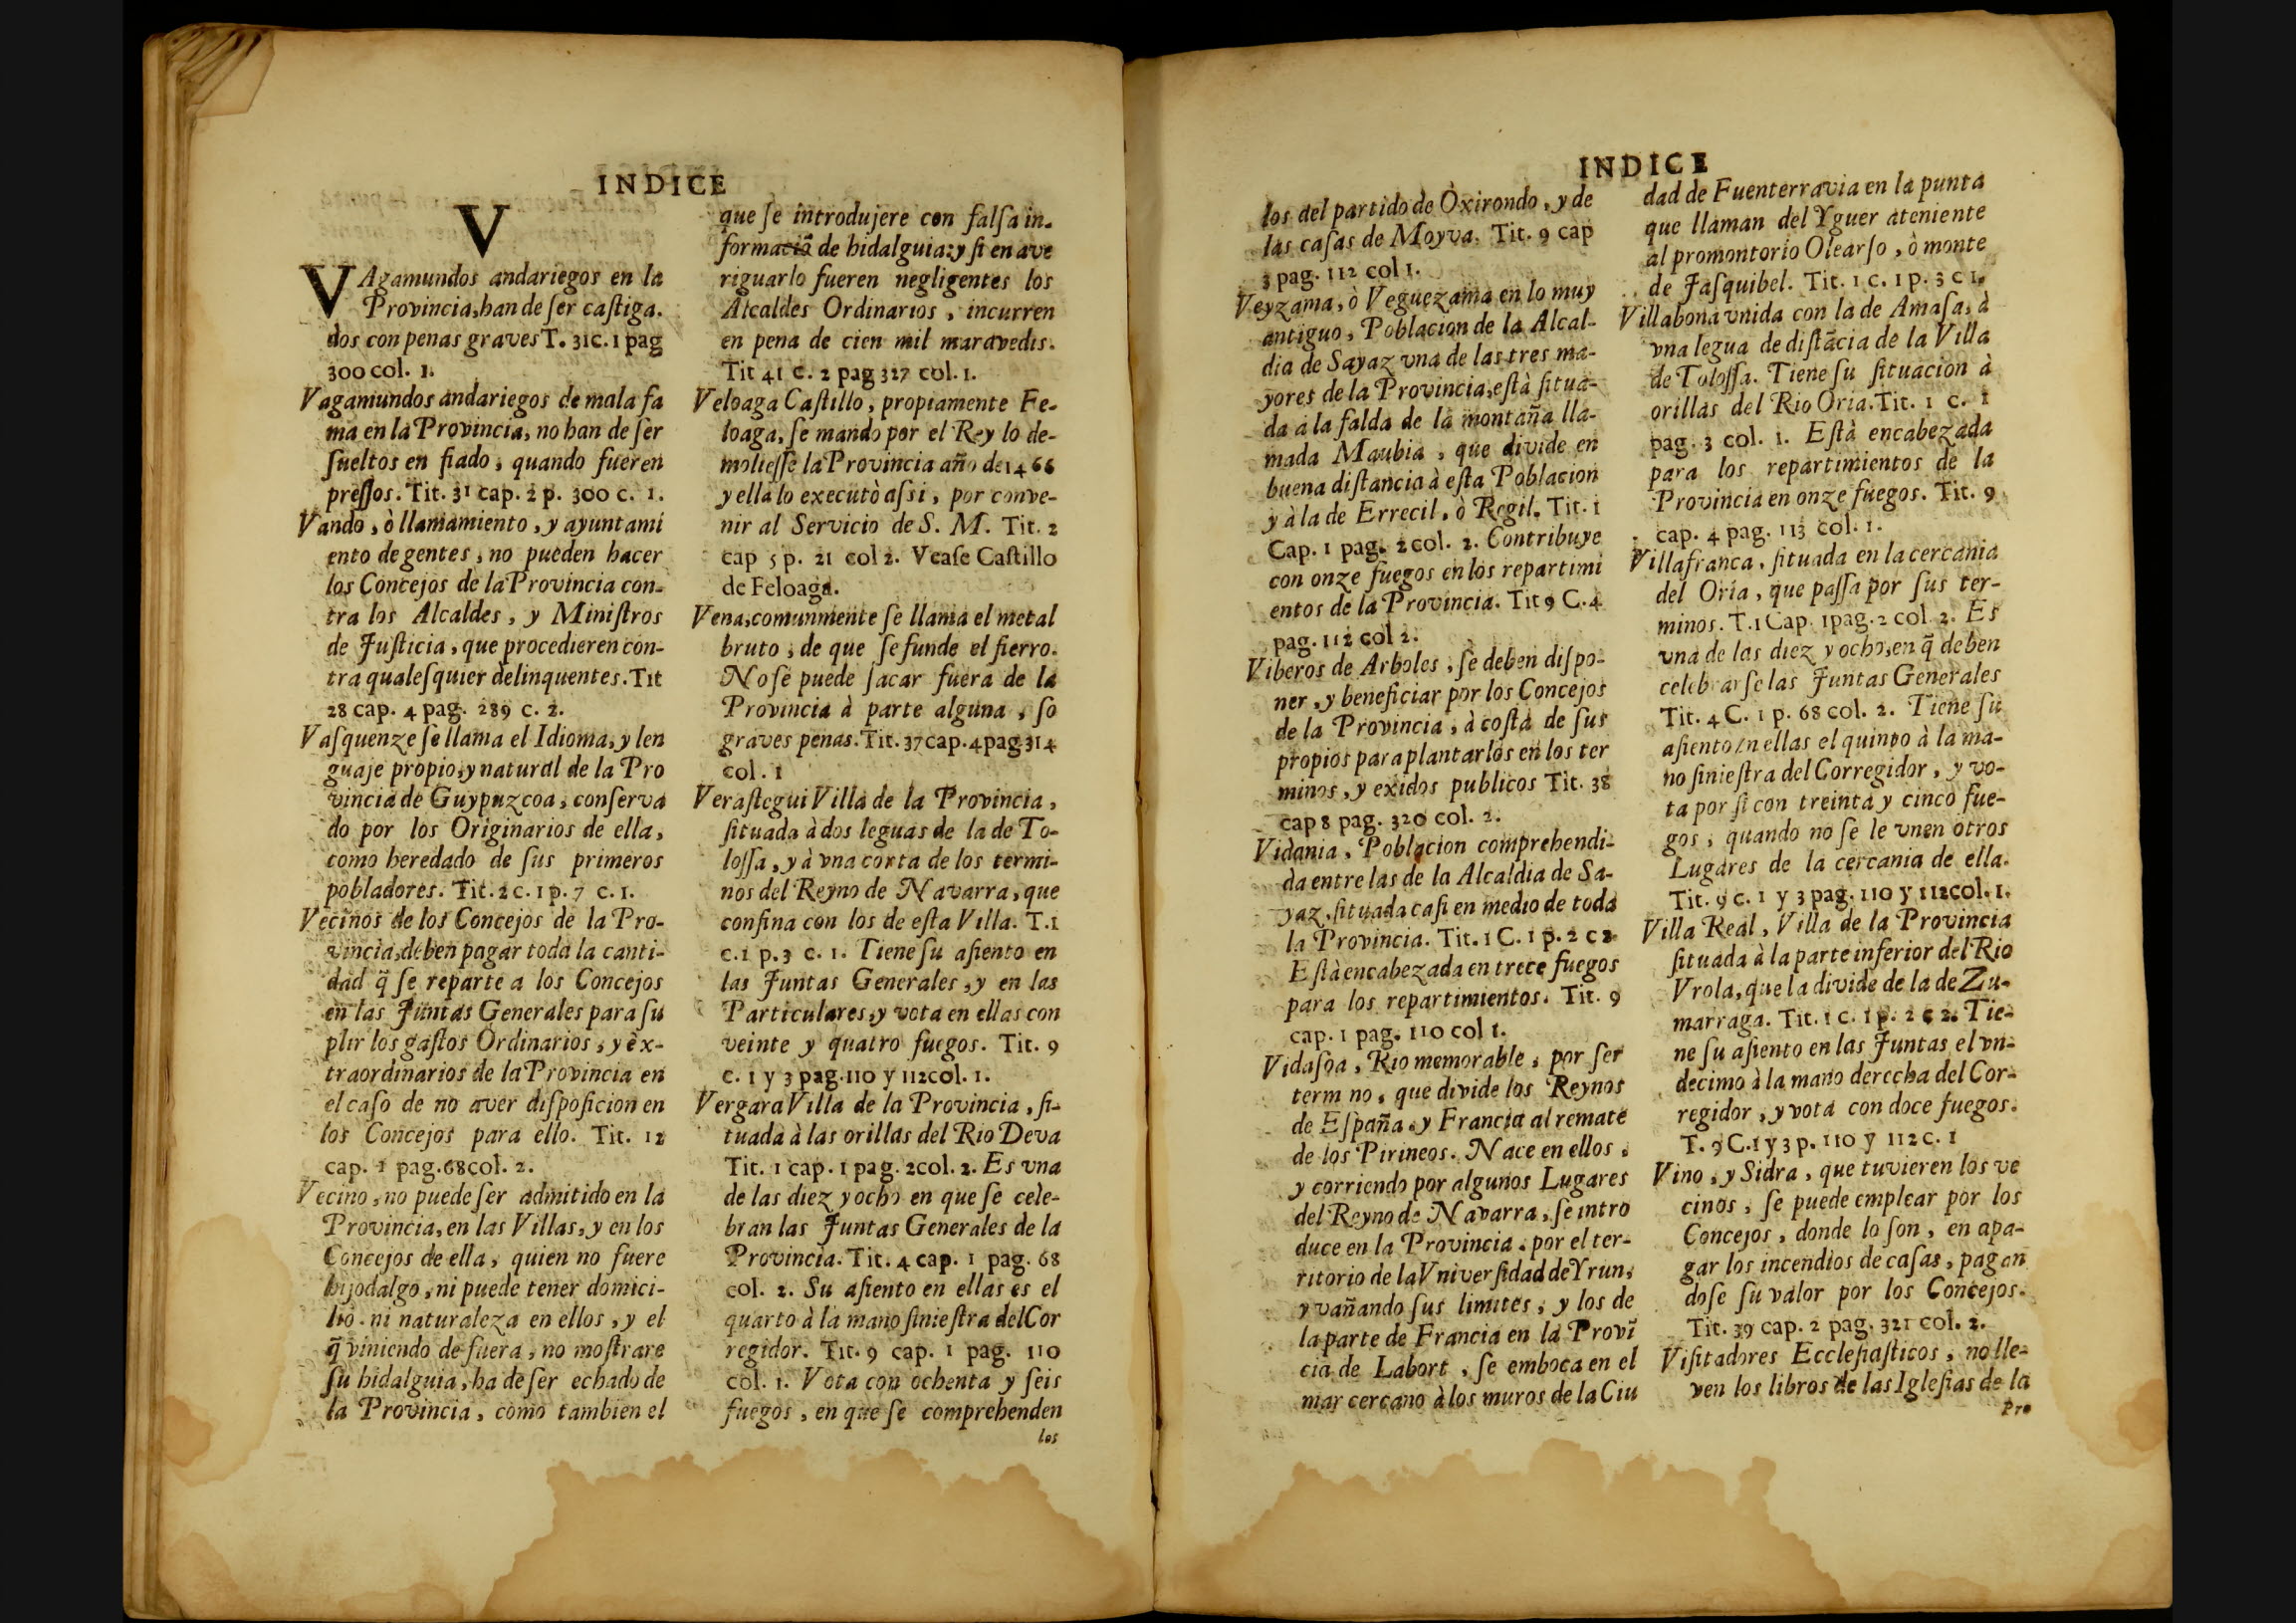 INDICE
V
VAgamundos andariegos en la
Provincia, han de ser castiga.
dos con penas graves T. 31c. 1 pag
300 col. 1.
Vagamundos andariegos de mala fa
ma en la Provincia, no han de ser
sueltos en fiado, quando fueren
pressos. Tit. 31 cap. 2 p. 300 c. 1.
Vando, ò llamamiento, y ayuntami
ento de gentes, no pueden hacer
los Concejos de la Provincia con-
tra los Alcaldes, y Ministros
de Justicia, que procedieren con-
tra qualesquier delinquentes. Tit
28 cap. 4 pag. 289 c. 2.
Vasquenze se llama el Idioma, y len
guaje propio, y natural de la Pro
vincia de Guypuzcoa, conserva
do por los Originarios de ella,
como heredado de sus primeros
pobladores. Tit. 2 c. 1 p. 7 c. 1.
Vecinos de los Concejos de la Pro-
vincia, deben pagar toda la canti-
dad q̃ se reparte a los Concejos
en las Juntas Generales para su
plir los gastos Ordinarios, y èx-
traordinarios de la Provincia en
el caso de no aver disposicion en
los Concejos para ello. Tit. 12
cap. 1 pag. 68 col. 2.
Vecino, no puede ser admitido en la
Provincia, en las Villas, y en los
Concejos de ella, quien no fuere
hijodalgo, ni puede tener domici-
lio. ni naturaleza en ellos, y el
q̃ viniendo de fuera, no mostrare
su hidalguia, ha de ser echado de
la Provincia, como tambien el
que se introdujere con falsa in-
formaciõ de hidalguia: y si en ave
riguarlo fueren negligentes los
Alcaldes Ordinarios, incurren
en pena de cien mil maravedis.
Tit 41 c. 2 pag 327 col. 1.
Veloaga Castillo, propiamente Fe-
loaga, se mando por el Rey lo de-
moliesse la Provincia año de 1466
y ella lo executò assi, por conve-
nir al Servicio de S. M. Tit. 2
cap 5 p. 21 col 2. Vease Castillo
de Feloaga.
Vena, comunmente se llama el metal
bruto, de que se funde el fierro.
No se puede sacar fuera de la
Provincia à parte alguna, so
graves penas. Tit. 37 cap. 4 pag. 314
col. 1
Verastegui Villa de la Provincia,
situada à dos leguas de la de To-
lossa, y à vna corta de los termi-
nos del Reyno de Navarra, que
confina con los de esta Villa. T. 1
c. 1 p. 3 c. 1. Tiene su asiento en
las Juntas Generales, y en las
Particulares, y vota en ellas con
veinte y quatro fuegos. Tit. 9
c. 1 y 3 pag. 110 y 112 col. 1.
Vergara Villa de la Provincia, si-
tuada à las orillas del Rio Deva
Tit. 1 cap. 1 pag. 2 col. 2. Es vna
de las diez y ocho en que se cele-
bran las Juntas Generales de la
Provincia. Tit. 4 cap. 1 pag. 68
col. 2. Su asiento en ellas es el
quarto à la mano siniestra del Cor
regidor. Tit. 9 cap. 1 pag. 110
col. 1. Vota con ochenta y seis
fuegos, en que se comprehenden
los
INDICE
los del partido de Oxirondo, y de
las casas de Moyva. Tit. 9 cap
3 pag. 112 col 1.
Veyzama, ò Veguezama en lo muy
antiguo, Poblacion de la Alcal-
dia de Sayaz vna de las tres ma-
yores de la Provincia, està situa-
da a la falda de la montaña lla-
mada Maubia, que divide en
buena distancia à esta Poblacion
y à la de Errecil, ò Regil. Tit. 1
Cap. 1 pag. 2 col. 2. Contribuye
con onze fuegos en los repartimi
entos de la Provincia. Tit 9 C. 4
pag. 112 col 2.
Viberos de Arboles, se deben dispo-
ner, y beneficiar por los Concejos
de la Provincia, à costa de sus
propios para plantarlos en los ter
minos, y exidos publicos Tit. 38
cap 8 pag. 320 col. 2.
Vidania, Poblacion comprehendi-
da entre las de la Alcaldia de Sa-
yaz, situada casi en medio de toda
la Provincia. Tit. 1 C. 1 p. 2 c 2
Està encabezada en trece fuegos
para los repartimientos. Tit. 9
cap. 1 pag. 110 col 1.
Vidasoa, Rio memorable, por ser
term no, que divide los Reynos
de España, y Francia al remate
de los Pirineos. Nace en ellos,
y corriendo por algunos Lugares
del Reyno de Navarra, se intro
duce en la Provincia, por el ter-
ritorio de la Vniversidad de Yrun,
y vañando sus limites, y los de
la parte de Francia en la Provĩ
cia de Labort, se emboca en el
mar cercano à los muros de la Ciu
dad de Fuenterravia en la punta
que llaman del Yguer ateniente
al promontorio Olearso, ò monte
de Jasquibel. Tit. 1 c. 1 p. 3 c 1.
Villabona vnida con la de Amasa, à
vna legua de distãcia de la Villa
de Tolossa. Tiene su situacion à
orillas del Rio Oria. Tit. 1 c. 1
pag. 3 col. 1. Està encabezada
para los repartimientos de la
Provincia en onze fuegos. Tit. 9
cap. 4 pag. 113 col. 1.
Villafranca, situada en la cercania
del Oria, que passa por sus ter-
minos. T. 1 Cap. 1 pag. 2 col 2. Es
vna de las diez y ocho, en q̃ deben
celebrarse las Juntas Generales
Tit. 4 C. 1 p. 68 col. 2. Tiene su
asiento en ellas el quinto à la ma-
no siniestra del Corregidor, y vo-
ta por si con treinta y cinco fue-
gos, quando no se le vnen otros
Lugares de la cercania de ella.
Tit. 9 c. 1 y 3 pag. 110 y 112 col. 1.
Villa Real, Villa de la Provincia
situada à la parte inferior del Rio
Vrola, que la divide de la de Zu-
marraga. Tit. 1 c. 1 p. 2 c 2. Tie-
ne su asiento en las Juntas el vn-
decimo à la mano derecha del Cor-
regidor, y vota con doce fuegos.
T. 9 C. 1 y 3 p. 110 y 112 c. 1
Vino, y Sidra, que tuvieren los ve
cinos, se puede emplear por los
Concejos, donde lo son, en apa-
gar los incendios de casas, pagan
dose su valor por los Concejos.
Tit. 39 cap. 2 pag. 321 col. 2.
Visitadores Ecclesiasticos, no lle-
ven los libros de las Iglesias de la
Pro